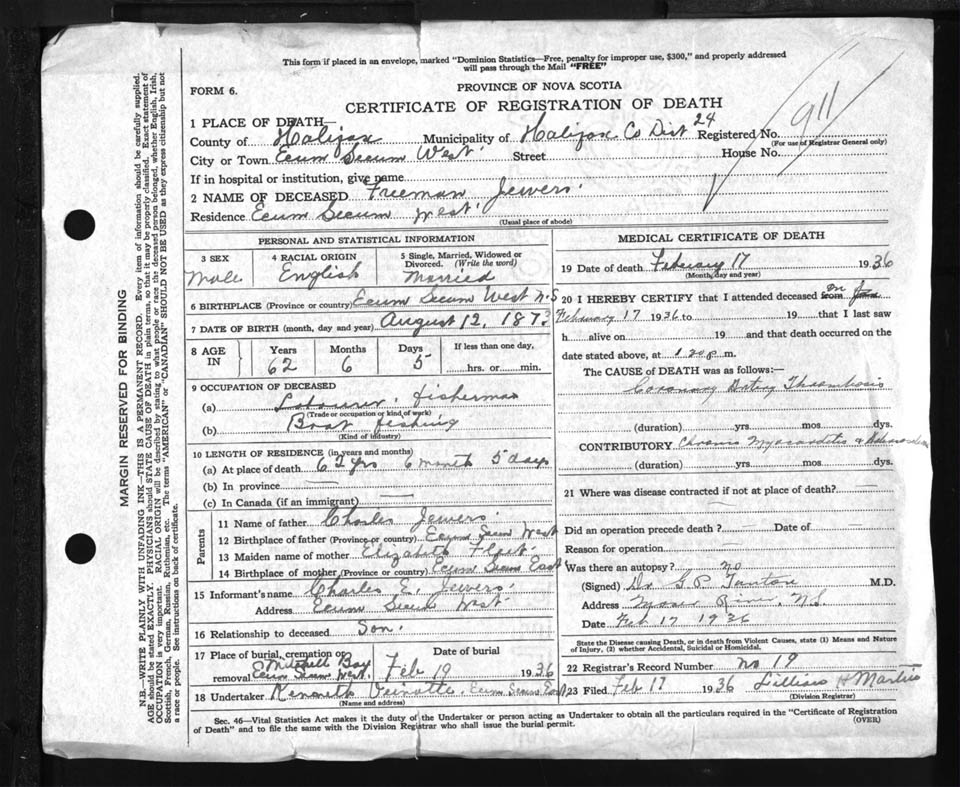 This form if placed in an envelope, marked "Dominion Statistics—Free, penalty for improper use, $300," and properly addressed
will pass through the Mail "FREE"
FORM 6.
PROVINCE OF NOVA SCOTIA
CERTIFICATE OF REGISTRATION OF DEATH
911
1 PLACE OF DEATH—
County of Halifax Municipality of Halifax Co Dist 24 Registered No.
(For use of Registrar General only)
City or Town Ecum Secum West Street House No.
If in hospital or institution, give name
2 NAME OF DECEASED Freeman Jewers
Residence Ecum Secum West
(Usual place of abode)
PERSONAL AND STATISTICAL INFORMATION
3 SEX 4 RACIAL ORIGIN 5 Single, Married, Widowed or
Divorced. (Write the word)
Male English Married
6 BIRTHPLACE (Province or country) Ecum Secum West N.S
7 DATE OF BIRTH (month, day and year) August 12, 1873
8 AGE IN Years Months Days If less than one day,
62 6 5 hrs. or min.
9 OCCUPATION OF DECEASED
(a) Labourer, fisherman
(Trade or occupation or kind of work)
(b) Boat fishing
(Kind of industry)
10 LENGTH OF RESIDENCE (in years and months)
(a) At place of death 62 yrs 6 month 5 days
(b) In province
(c) In Canada (if an immigrant)
Parents
11 Name of father Charles Jewers
12 Birthplace of father (Province or country) Ecum Secum West
13 Maiden name of mother Elizabeth
14 Birthplace of mother (Province or country) Ecum Secum East
15 Informant's name Charles E. Jewers
Address Ecum Secum West
16 Relationship to deceased Son.
17 Place of burial, cremation or removal Mitchell Bay
Ecum Secum West. Date of burial Feb 19 1936
18 Undertaker Kenneth Veinotte, Ecum Secum East
(Name and address)
MEDICAL CERTIFICATE OF DEATH
19 Date of death February 17 1936
(Month, day and year)
20 I HEREBY CERTIFY that I attended deceased from on
February 17 1936 to 19 that I last saw
h alive on 19 and that death occurred on the
date stated above, at 1.20 p. m.
The CAUSE of DEATH was as follows:—
Coronary Artery Thrombosis
(duration) yrs. mos. dys.
CONTRIBUTORY Chronic Myocarditis &
(duration) yrs. mos. dys.
21 Where was disease contracted if not at place of death?
Did an operation precede death? Date of
Reason for operation
Was there an autopsy? no
(Signed) Dr G.P. Tanton M.D.
Address Moser River, N.S.
Date Feb 17 1936
State the Disease causing Death, or in death from Violent Causes, state (1) Means and Nature
of Injury, (2) whether Accidental, Suicidal or Homicidal.
22 Registrar's Record Number No 19
23 Filed Feb 17 1936 Lillian H Martin
(Division Registrar)
Sec. 46—Vital Statistics Act makes it the duty of the Undertaker or person acting as Undertaker to obtain all the particulars required in the "Certificate of Registration
of Death" and to file the same with the Division Registrar who shall issue the burial permit. (OVER)
MARGIN RESERVED FOR BINDING
N.B.—WRITE PLAINLY WITH UNFADING INK—THIS IS A PERMANENT RECORD. Every item of information should be carefully supplied.
AGE should be stated EXACTLY. PHYSICIANS should STATE CAUSE OF DEATH in plain terms, so that it may be properly classified. Exact statement of
OCCUPATION is very important. RACIAL ORIGIN will be described by stating to what people or race the deceased person belonged, whether English, Irish,
Scottish, French, German, Russian, Ruthenian, etc. The terms "AMERICAN" or "CANADIAN" SHOULD NOT BE USED as they express citizenship but not
a race or people. See instructions on back of certificate.